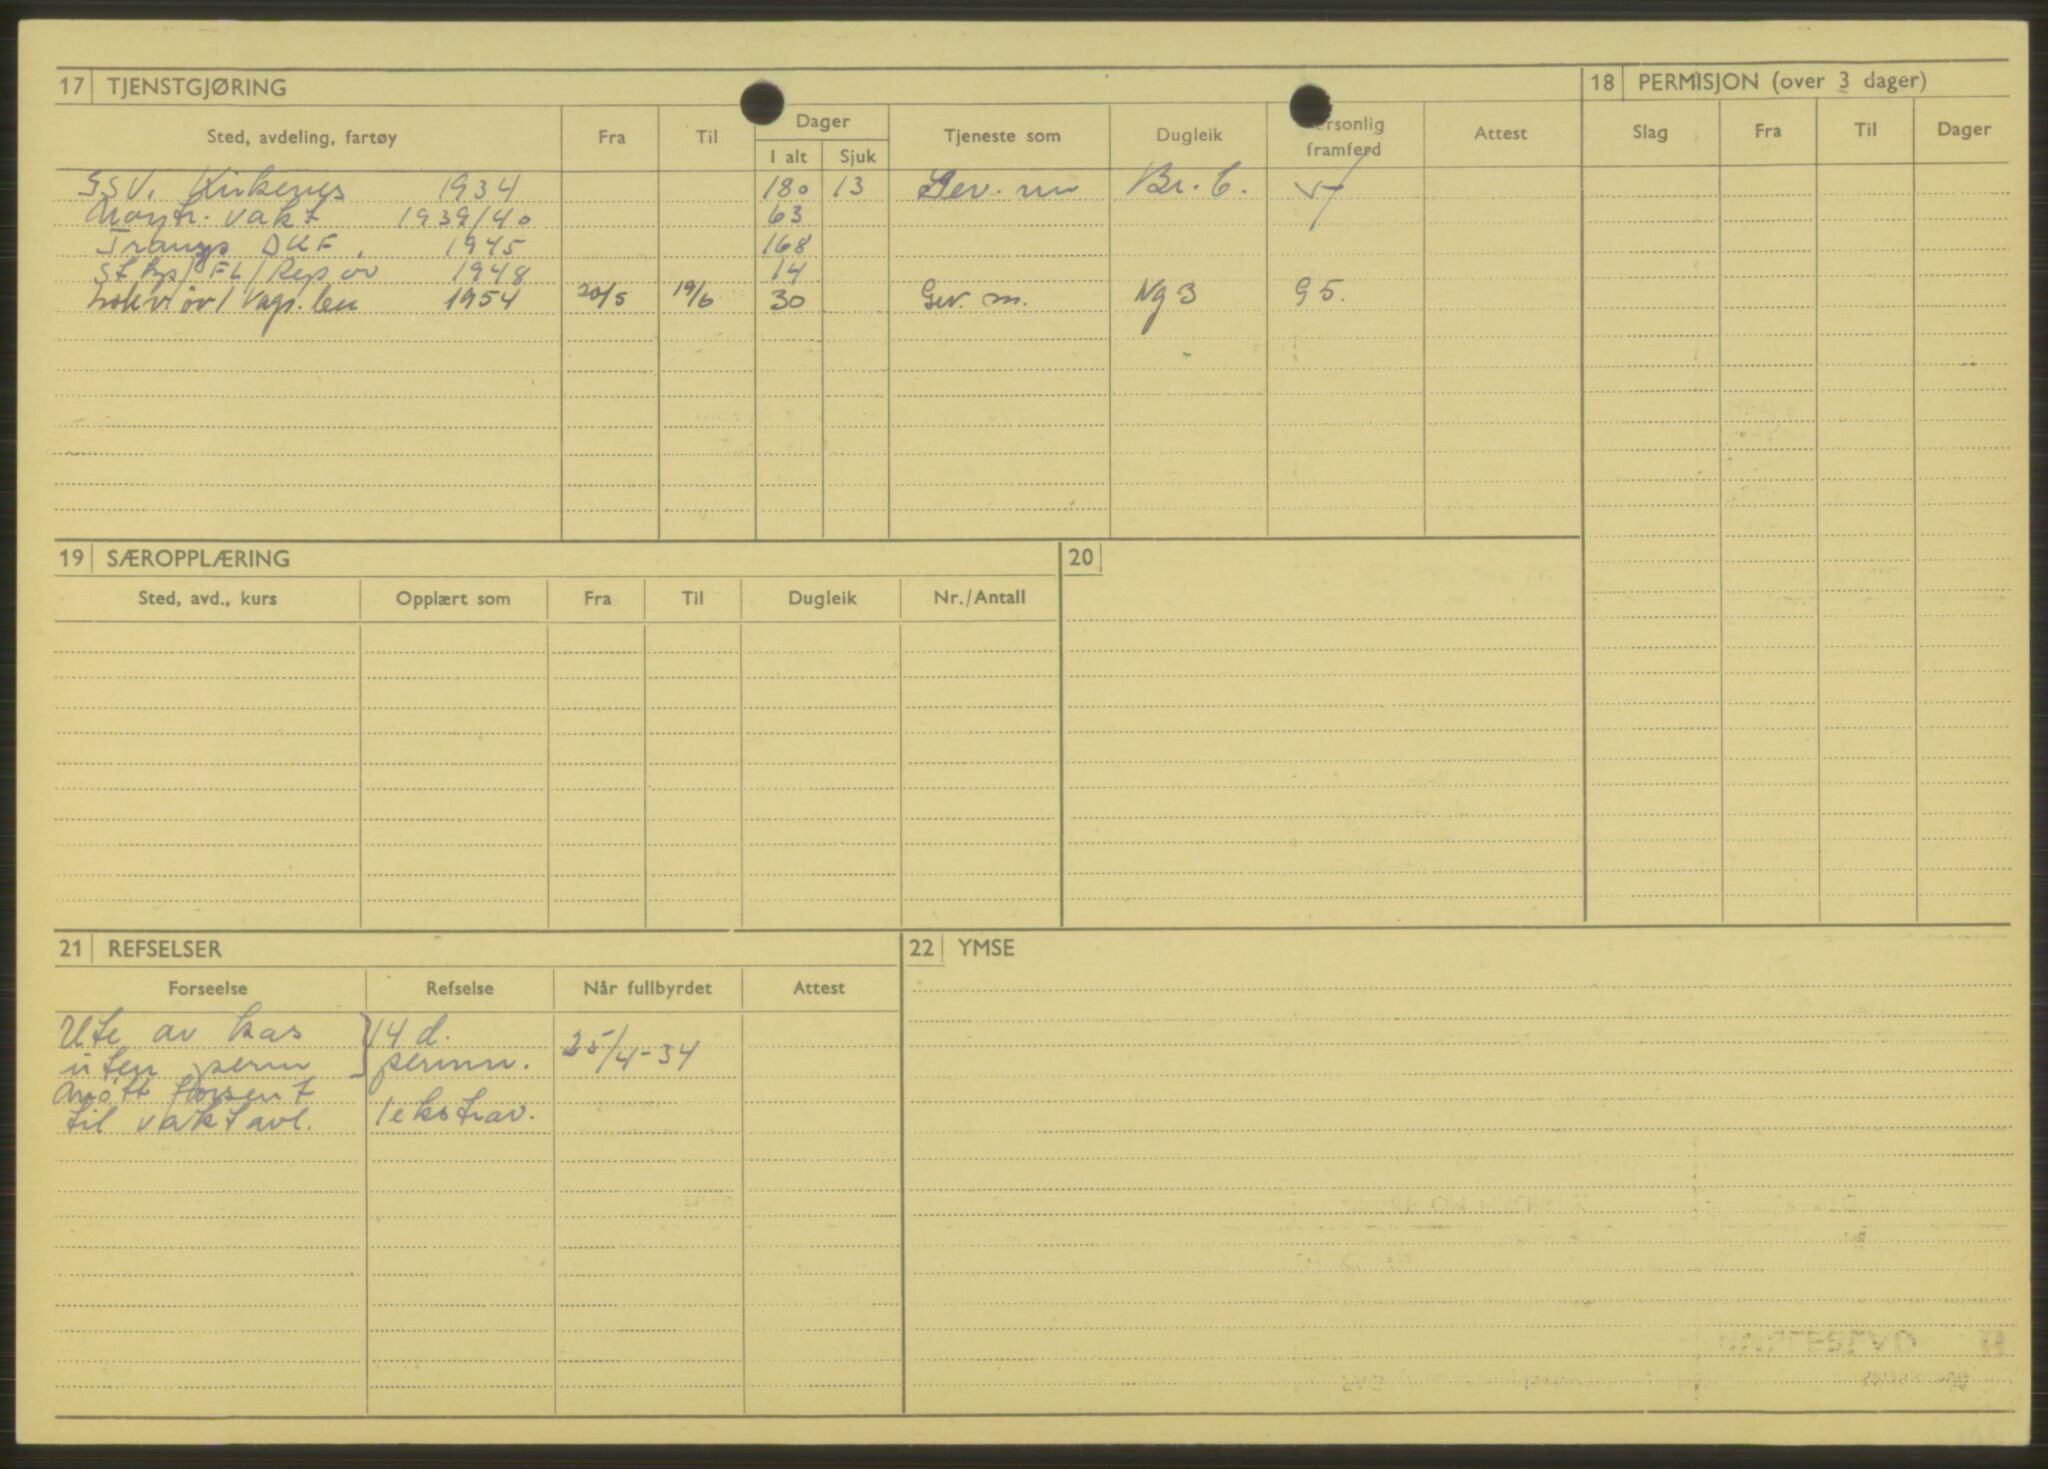 17 TJENSTGJØRING
Sted, avdeling, fartøy Fra Til Dager I alt Sjuk Tjeneste som Dugleik Personlig framferd Attest
GSV. Kirkenes 1934 180 13 Gev. m Br. C.
Nøytr. vakt 1939/40 63
DKF. 1945 168
FL/Rep øv 1948 14
1954 20/5 19/6 30 Gev. m. Ng 3 G 5.
18 PERMISJON (over 3 dager)
Slag Fra Til Dager
19 SÆROPPLÆRING
Sted, avd., kurs Opplært som Fra Til Dugleik Nr./Antall
20
21 REFSELSER
Forseelse Refselse Når fullbyrdet Attest
Ute av kas } 14 d.
uten perm permn. 25/4-34
Møtt forsent
til vaktavl. 1 ekstrav.
22 YMSE